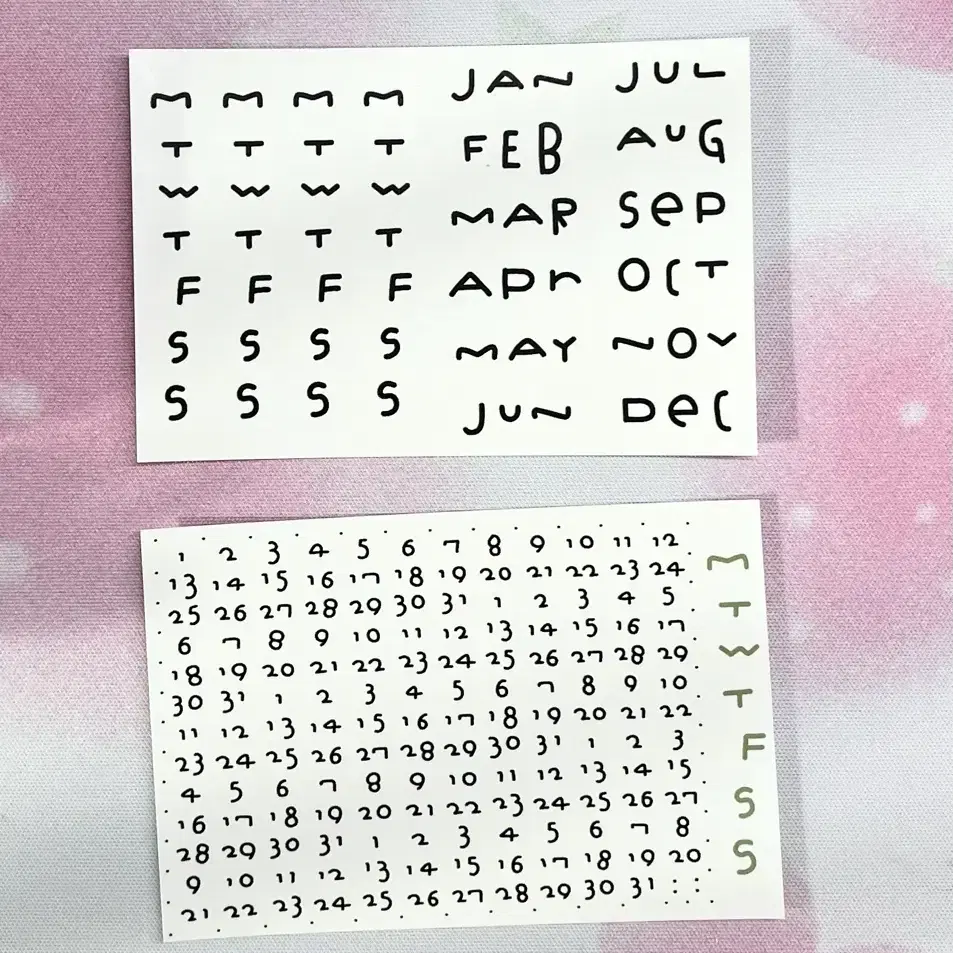 M M M M
T T T T
W W W W
T T T T
F F F F
S S S S
S S S S
JAN JUL
FEB AUG
MAR SeP
APr OCT
MAY NOV
JUN DeC
1 2 3 4 5 6 7 8 9 10 11 12
13 14 15 16 17 18 19 20 21 22 23 24
25 26 27 28 29 30 31 1 2 3 4 5
6 7 8 9 10 11 12 13 14 15 16 17
18 19 20 21 22 23 24 25 26 27 28 29
30 31 1 2 3 4 5 6 7 8 9 10
11 12 13 14 15 16 17 18 19 20 21 22
23 24 25 26 27 28 29 30 31 1 2 3
4 5 6 7 8 9 10 11 12 13 14 15
16 17 18 19 20 21 22 23 24 25 26 27
28 29 30 31 1 2 3 4 5 6 7 8
9 10 11 12 13 14 15 16 17 18 19 20
21 22 23 24 25 26 27 28 29 30 31
M
T
W
T
F
S
S